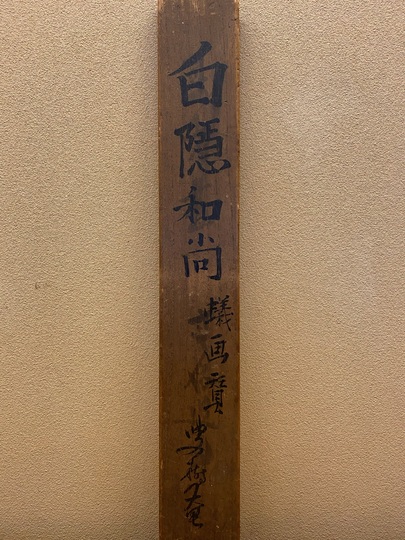 白隠和尚
蟻画賛